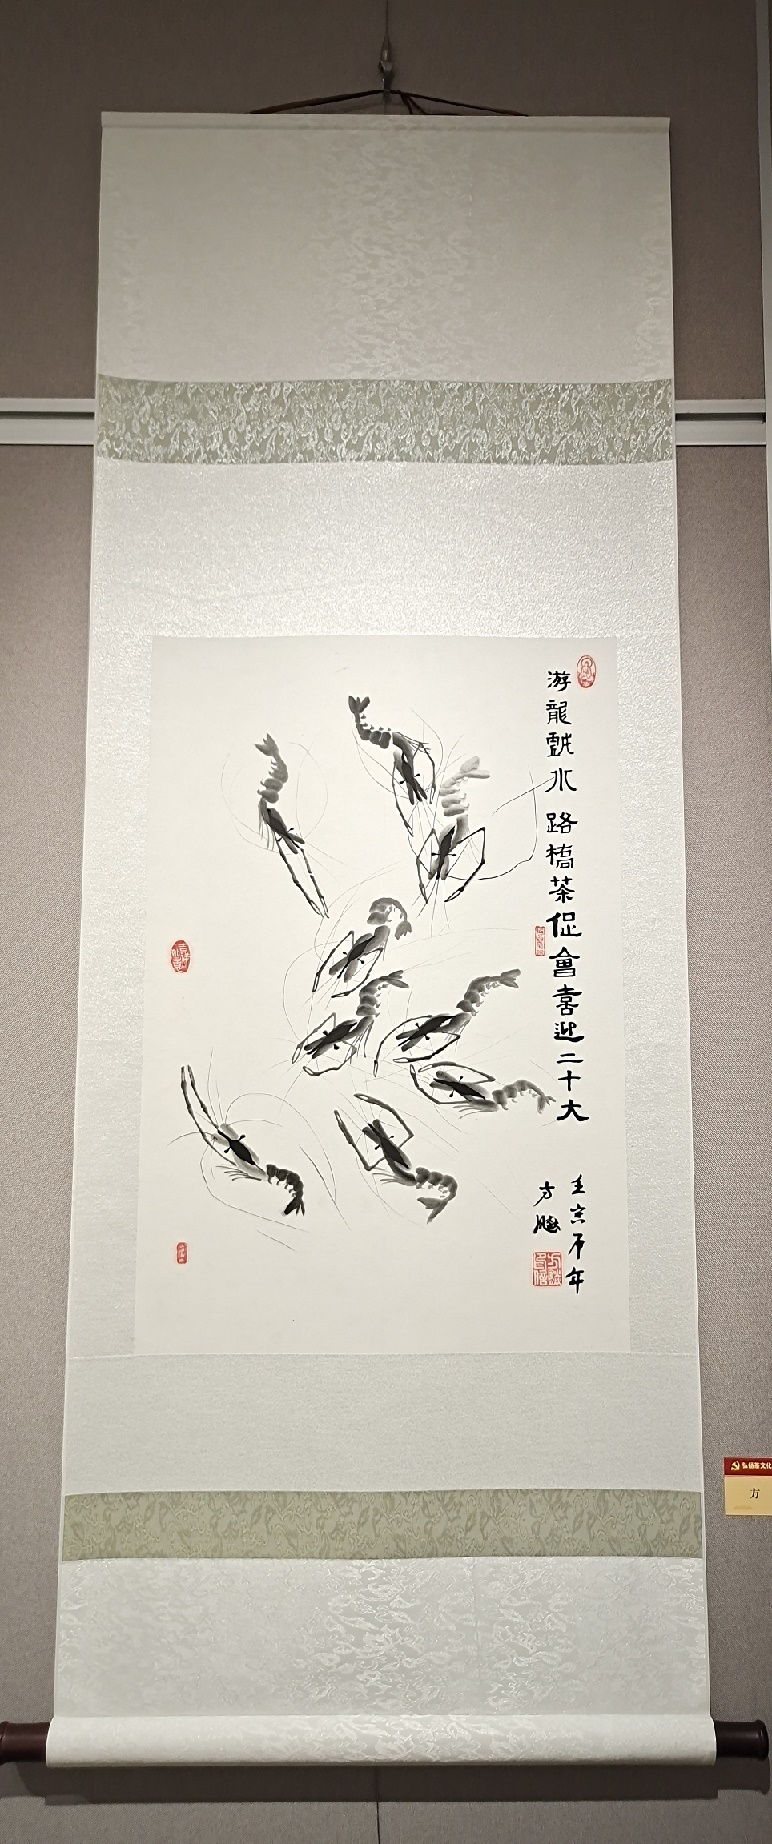 游龍戲水 路橋茶促會喜迎二十大
壬寅年
方
弘扬茶文化
方